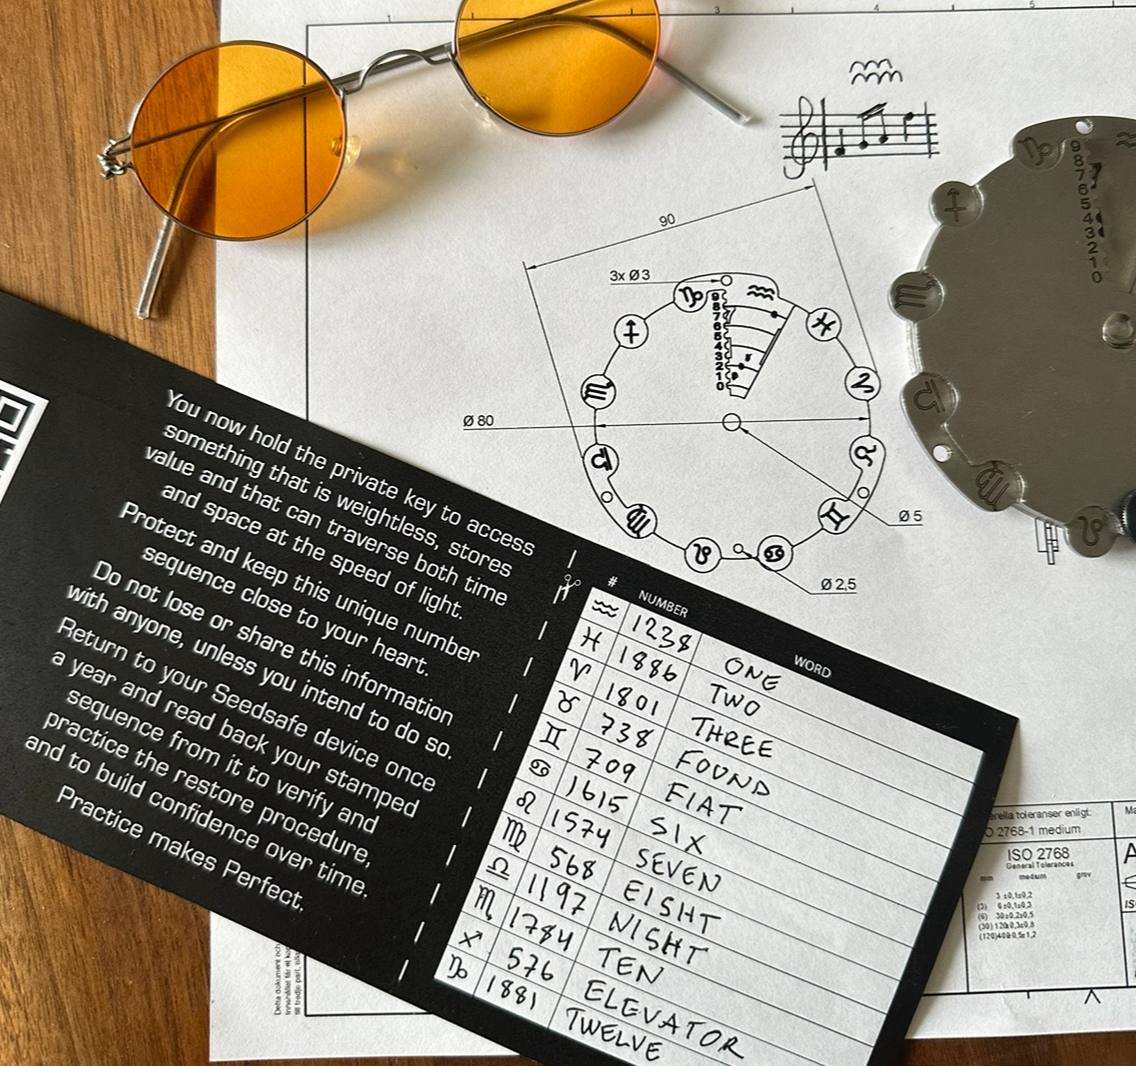 1
3
4
5
90
3x Ø 3
♑
♒
9
8
7
6
5
4
3
2
1
0
♐
♓
♏
♈
Ø 80
♎
♌
♍
♊
Ø 5
♉
♋
Ø 2,5
♑
♒
9
8
7
6
5
4
3
2
1
0
♐
♏
♎
♍
♉
You now hold the private key to access
something that is weightless, stores
value and that can traverse both time
and space at the speed of light.
Protect and keep this unique number
sequence close to your heart.
Do not lose or share this information
with anyone, unless you intend to do so.
Return to your Seedsafe device once
a year and read back your stamped
sequence from it to verify and
practice the restore procedure,
and to build confidence over time.
Practice makes Perfect.
# NUMBER WORD
♒ 1238 ONE
♓ 1886 TWO
♈ 1801 THREE
♉ 738 FOUND
♊ 709 FIAT
♋ 1615 SIX
♌ 1574 SEVEN
♍ 568 EISHT
♎ 1197 NISHT
♏ 1784 TEN
♐ 576 ELEVATOR
♑ 1881 TWELVE
toleranser enligt:
2768-1 medium
ISO 2768
General Tolerances
mm medium grov
3 ±0,1±0,2
(3) 6±0,1±0,3
(6) 30±0,2±0,5
(30) 120±0,3±0,8
(120)400±0,5±1,2
A
Detta dokument och